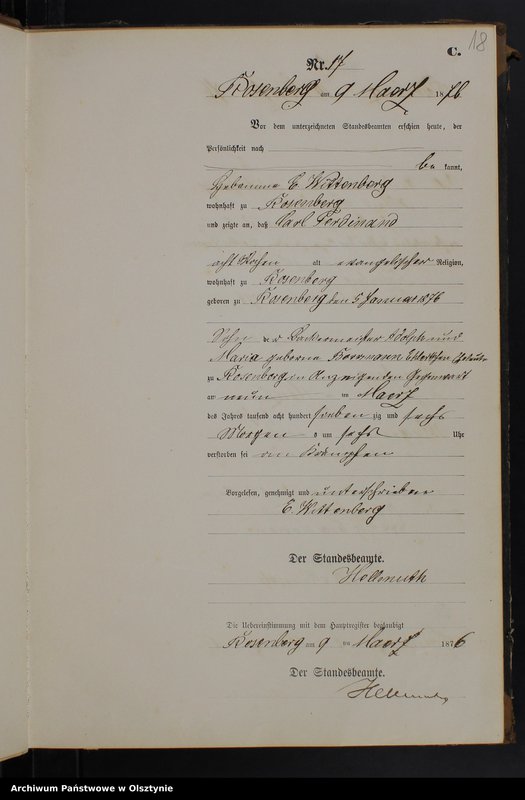 18
C.
Nr. 17
Rosenberg am 9 Maerz 1876
Vor dem unterzeichneten Standesbeamten erschien heute, der
Persönlichkeit nach
be kannt,
Hebamme E. Wittenberg
wohnhaft zu Rosenberg
und zeigte an, daß Carl Ferdinand
acht Wochen alt evangelischer Religion,
wohnhaft zu Rosenberg
geboren zu Rosenberg den 5 Januar 1876
Sohn der Backermeister Adolph und
Maria geborne Eheleute
zu Rosenberg in Gegenwart
am neun ten Maerz
des Jahres tausend acht hundert sieben zig und sechs
Morgens um sechs Uhr
verstorben sei an Krämpfen
Vorgelesen, genehmigt und unterschrieben
E. Wittenberg
Der Standesbeamte.
Hellmuth
Die Uebereinstimmung mit dem Hauptregister beglaubigt
Rosenberg am 9 ten Maerz 1876
Der Standesbeamte.
Hellmuth
Archiwum Państwowe w Olsztynie